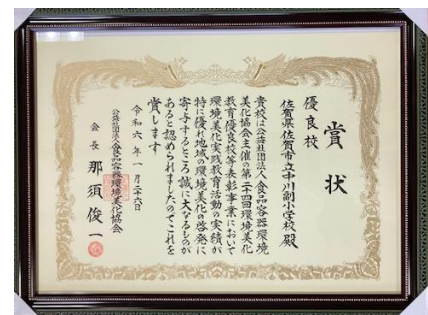 賞状
優良校
佐賀県佐賀市立中川副小学校 殿
貴校は公益社団法人食品容器環境
美化協会主催の第二十四回環境美化
教育優良校等表彰事業において
環境美化実践教育活動の実績が
特に優れ地域の環境美化の啓発に
寄与するところ誠に大なるものが
あると認められましたのでこれを
賞します
令和六年一月二十六日
公益社団法人食品容器環境美化協会
会長 那須俊一